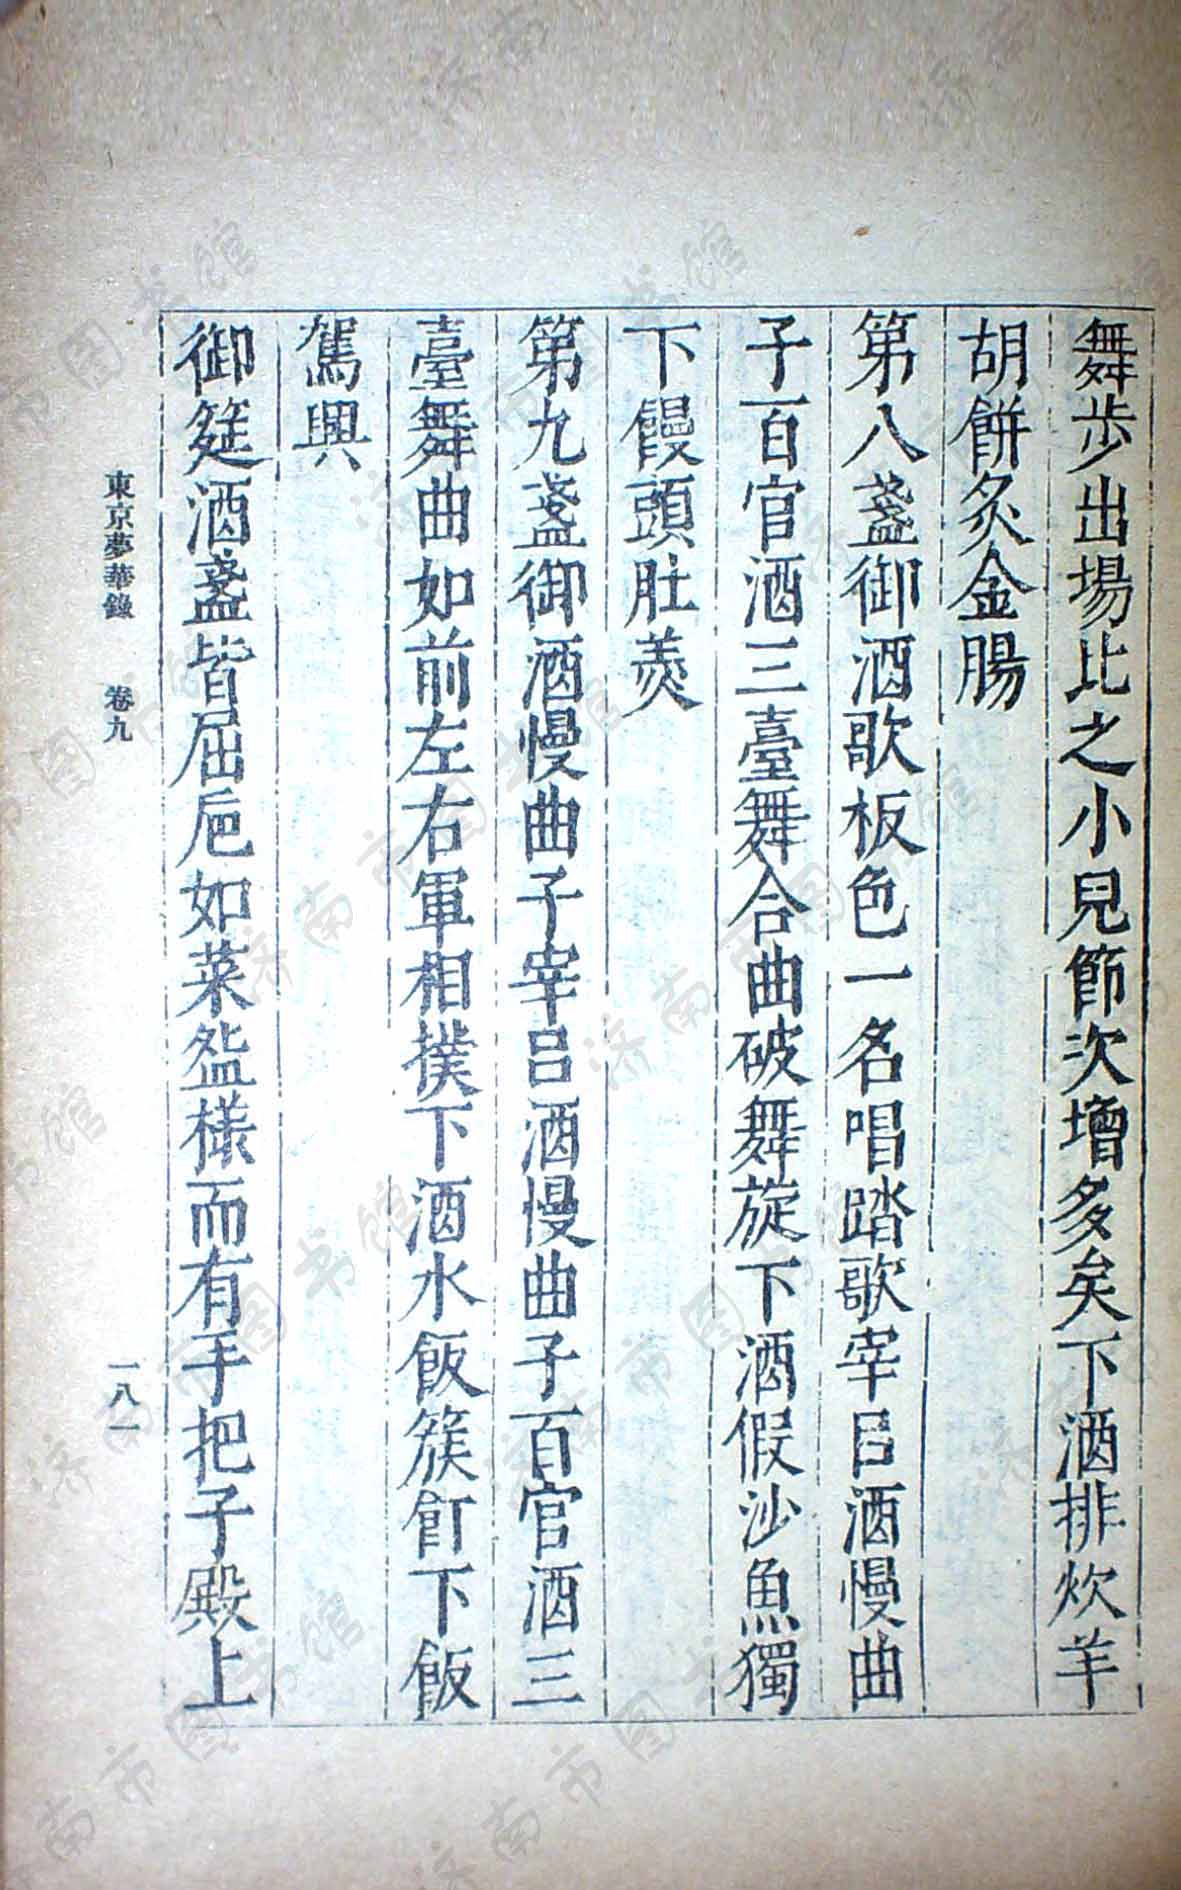 舞步出場比之小兒節次增多矣下酒排炊羊
胡餅炙金腸
第八盞御酒歌板色一名唱踏歌宰吕酒慢曲
子百官酒三臺舞合曲破舞旋下酒假沙魚獨
下饅頭肚羹
第九盞御酒慢曲子宰吕酒慢曲子百官酒三
臺舞曲如前左右軍相撲下酒水飯簇飣下飯
駕興
御筵酒盞皆屈巵如菜盌樣而有手把子殿上
東京夢華錄 卷九 一八一
济南市图书馆